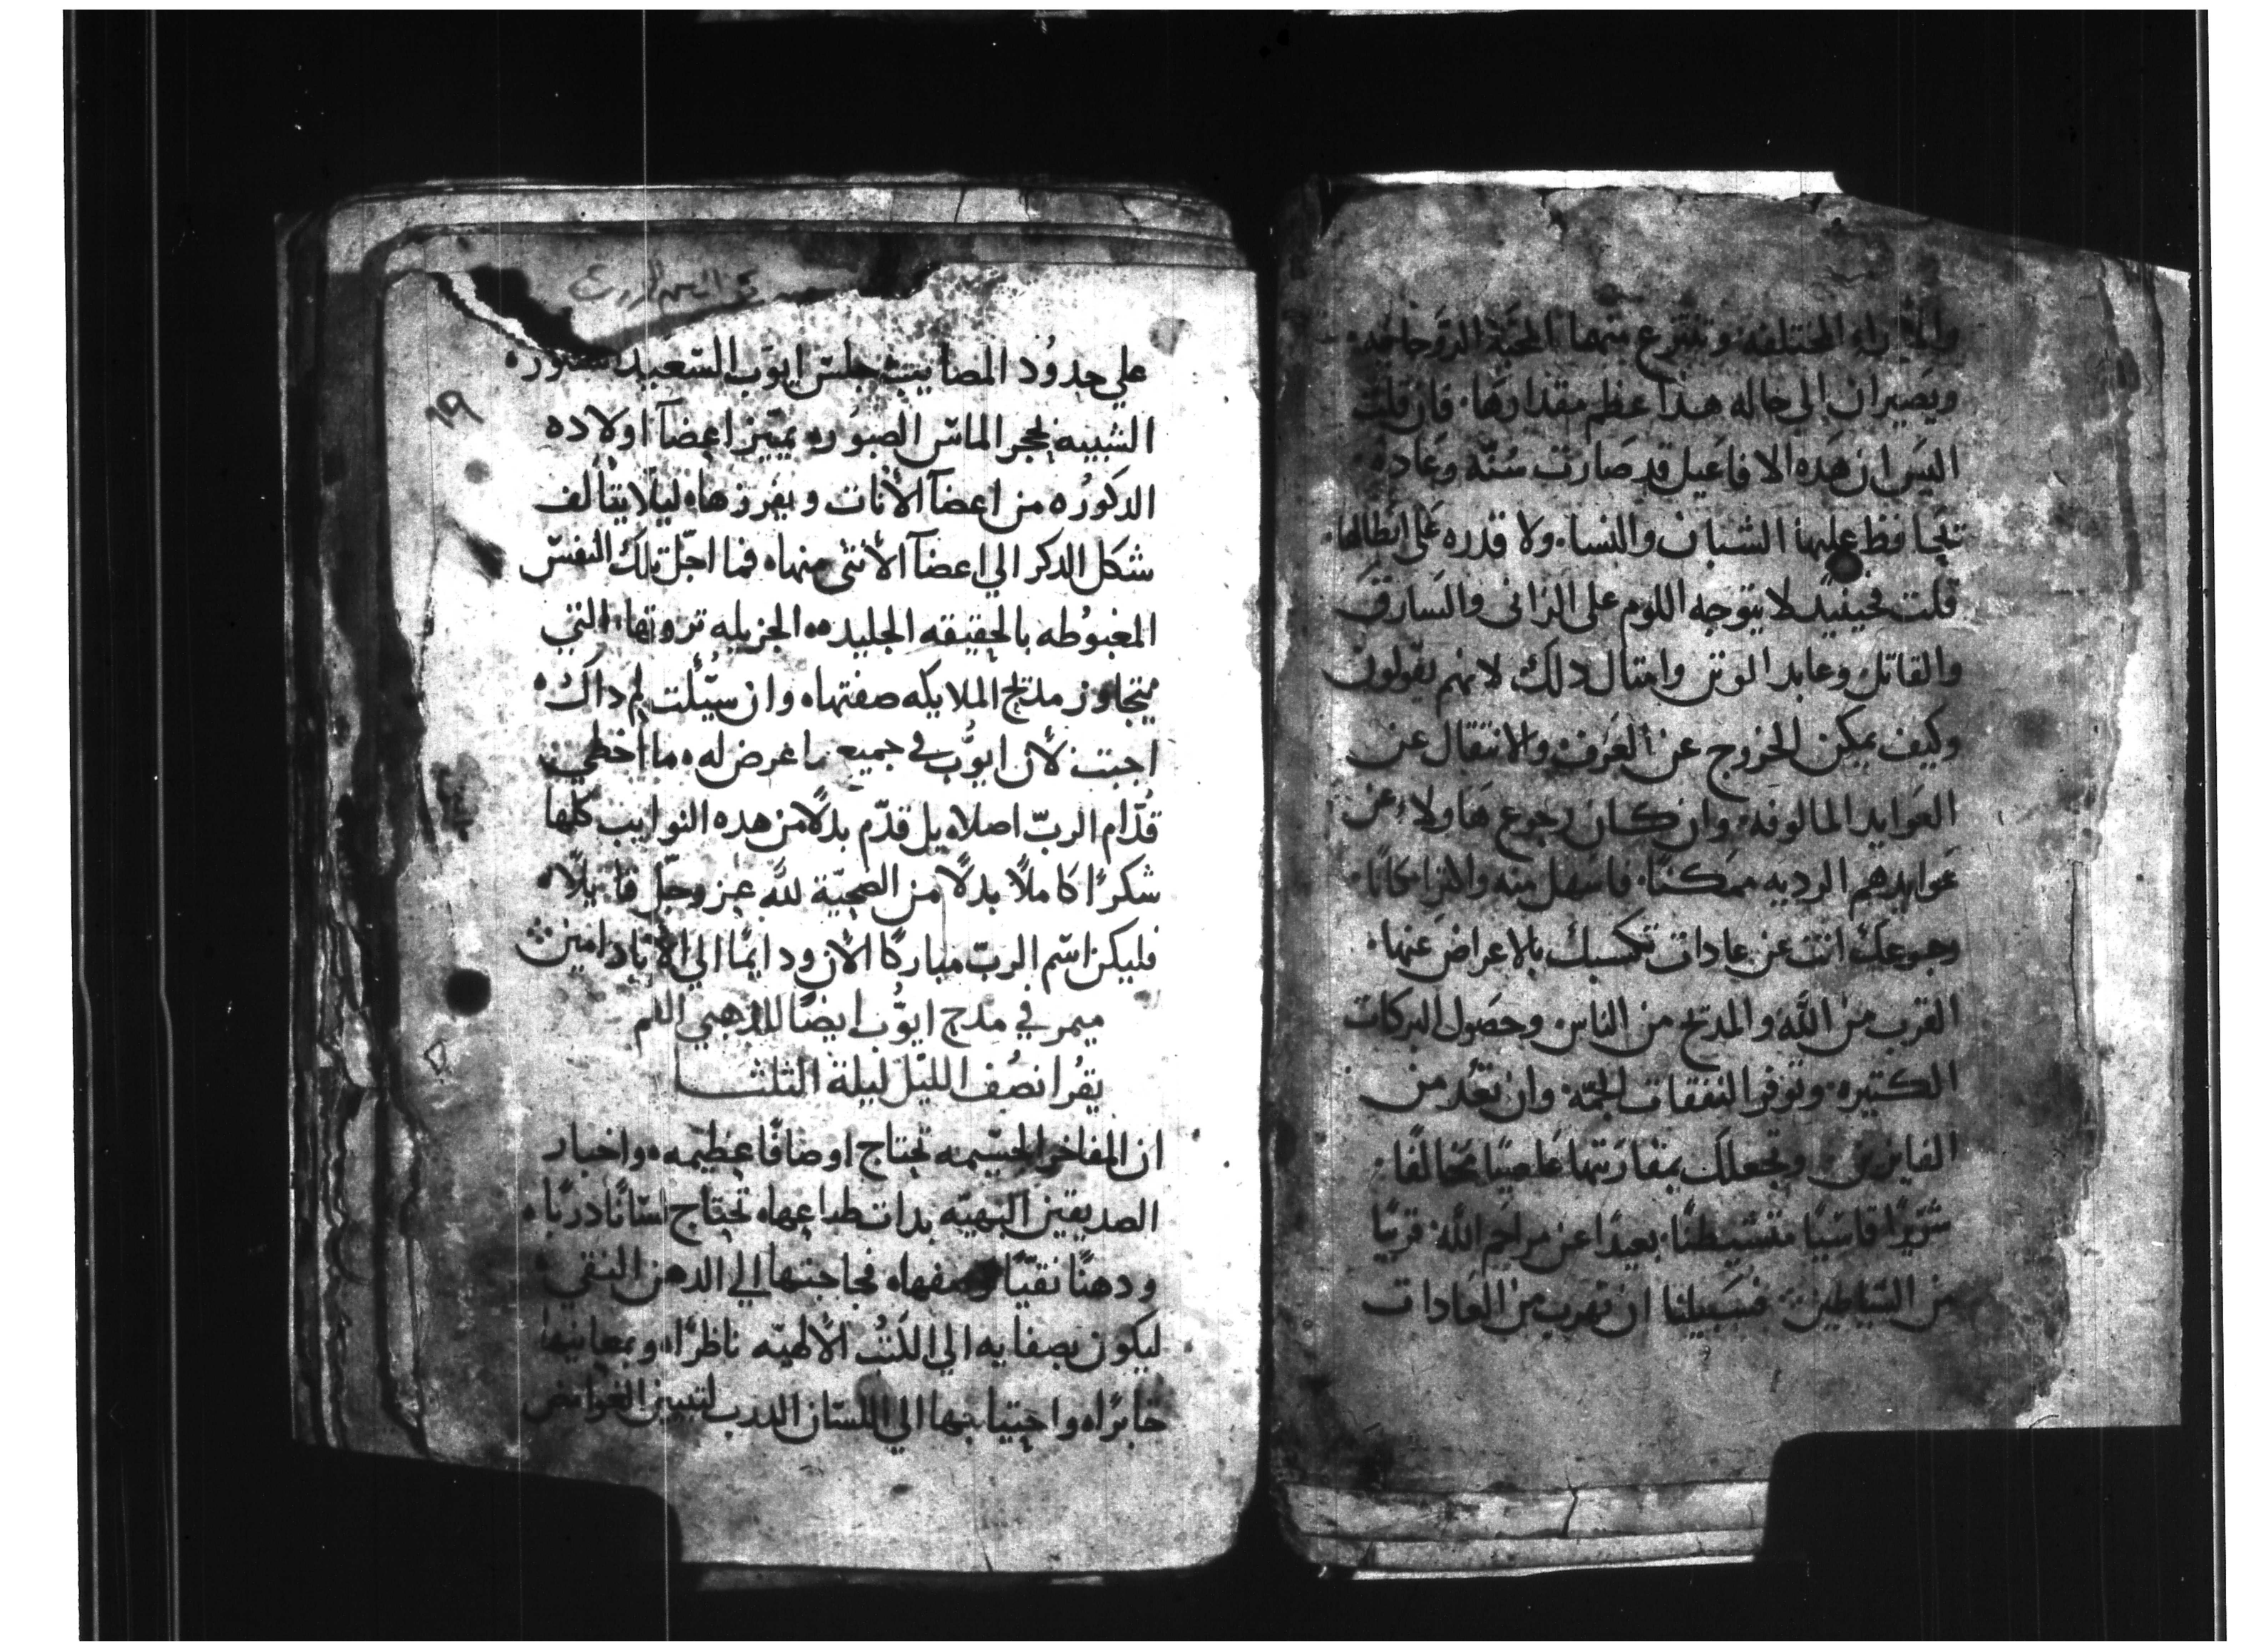 والاراء المختلفه وينتزع منهما المحبة الزوجانيه
ويصيران الي حاله هدا عظم مقدارها. فان قلت
اليس ان هده الافاعيل قد صارت سُنّه وعاده.
تحافظ عليها الشباب والنسا. ولا قدره على ابطالها.
قلت فحينيدٍ لا يتوجه اللوم على الزانى والسارق
والقاتل وعابد الوتن وامتال دلك لانهم يقولون
وكيف يمكن الخروج عن العرف والانتقال عن
العوايد المالوفه. وان كان رجوع هاولاء عن
عوايدهم الرديه ممكنًا. فاسهل منه والتر امكانًا.
رجوعك انت عن عادات تكسبك بالاعراض عنها.
القرب من الله والمدح من الناس وحصول البركات
الكتيره. وتوفر النفقات الجمّه وان تعُد من
الفايزين. وتجعلك بمقارنتها عاصيًا مخالفًا.
شرّيرًا قاسيًا متشيطنًا. بعيدًا عن مراحم الله. قريبًا
من الشياطين فسبيلنا ان نهرب من العادات
١٩
علي حدوُد المصايب جلس ايوب السعيد
الشبيه بحجر الماس الصبوُره يميّز اعضآ اولاده
الدكورُه من اعضآ الأنات ويفرزها. ليلا يتألف
شكل الدكر الي اعضآ الأنثى منها. فما اجّل تلك النفس
المغبوُطه بالحقيقه الجليده. الجزيله تروتها. التي
يتجاوز مدح الملايكه صفتها. وان سيُلت لِم داك.
اجبت لأن ايوُّب في جميع ما عرض له. ما اخطي
قدّام الربّ اصلا. بل قدّم بدلًا من هده النوايب كلها
شكرًا كاملًا بدلًا من الضحيّة لله عز وجلّ قايلًا.
فليكن اسم الربّ مباركًا الأن ودايمًا الي الأباد امين
ميمر في مدح ايوّب ايضًا للدهبي الفم
يقُرا نصُف الليل ليلة الثلثا
ان المفاخر الجسيمه تحتاج اوصافًا عظيمه. واخبار
الصديقين البهيّه بدات طباعها. تحتاج لسانًا دربًا.
ودهنًا نقيًّا وصفها. فحاجتها الي الدهن النقي.
ليكون بصفايه الي الكتُب الألهيّه ناظرًا. وبمعانيها
خابرًا. واحتياجها الي اللسان الدرب لتبيين الغوامض